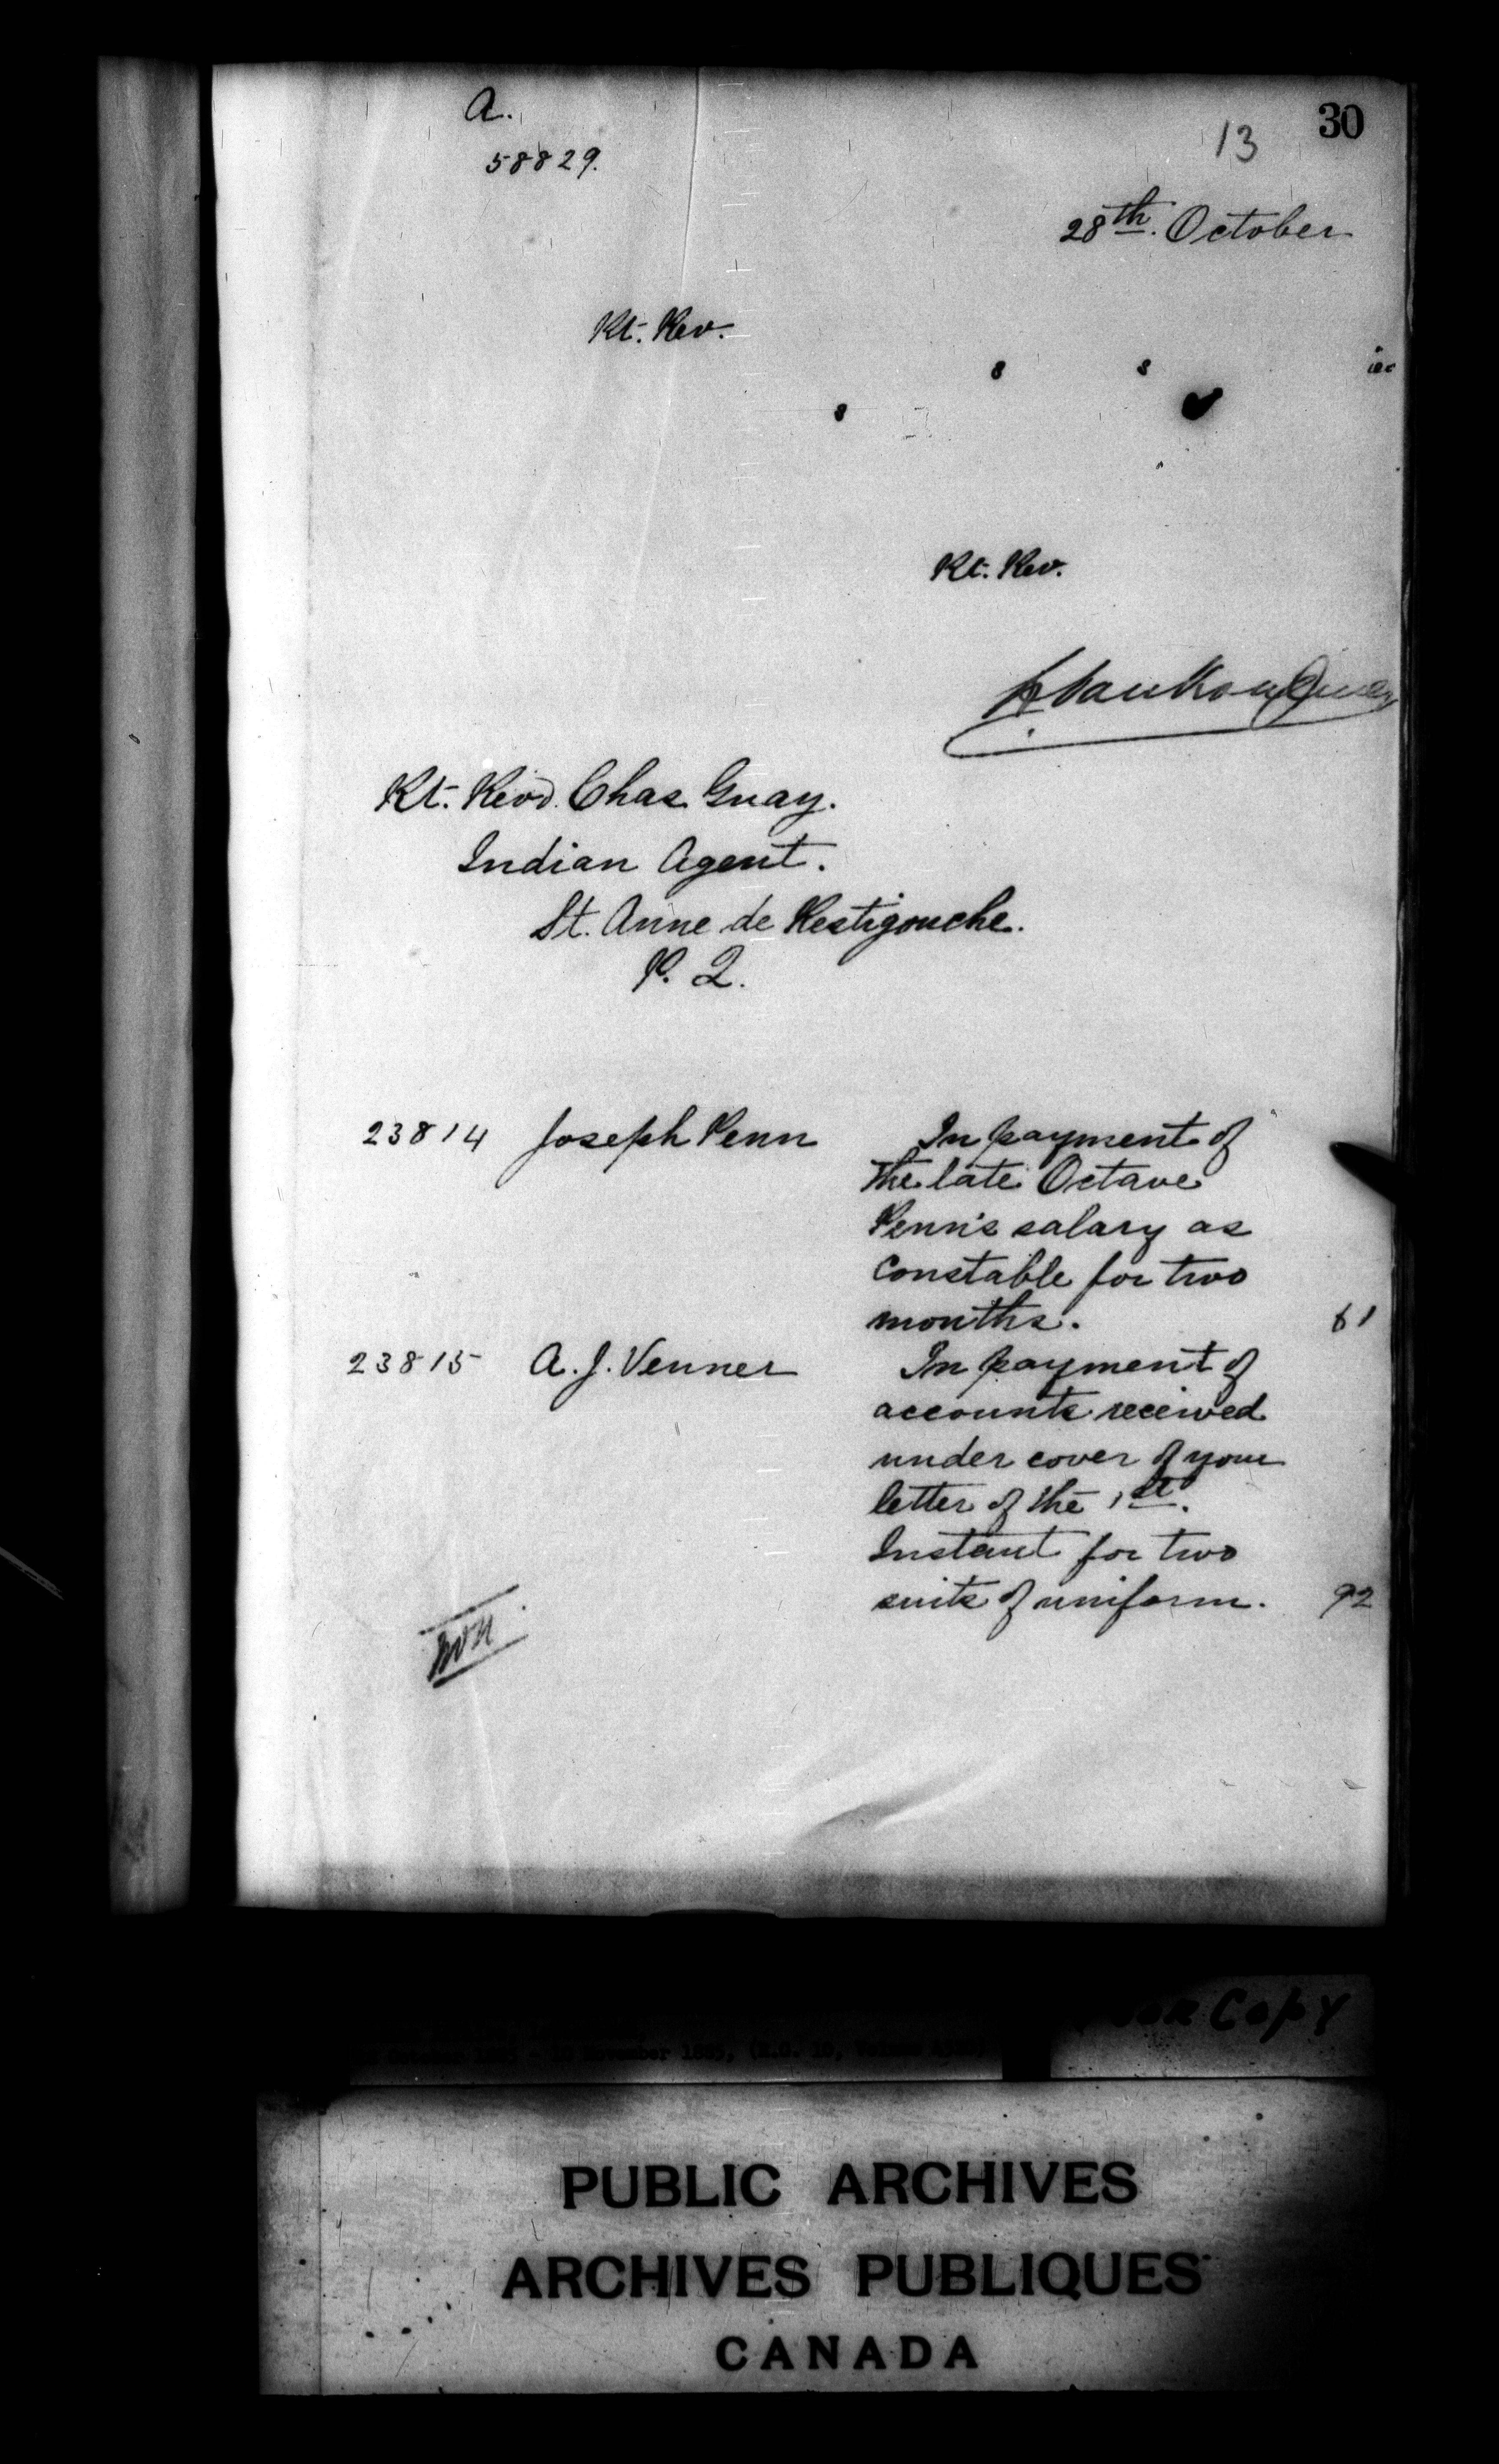 30
A.
13
58829.
28th. October
Rt. Rev.
8 8
8
Rt. Rev.
L Vankoughnet
Rt. Revd. Chas Guay.
Indian Agent.
St. Anne de Restigouche.
P. Q.
23814 Joseph Penn In payment of
the late Octave
Penn's salary as
Constable for two
months. 61
23815 A. J. Venner In payment of
accounts received
under cover of your
letter of the 1st.
Instant for two
suits of uniform. 92
Copy
October - November 1885, (R.G. 10, Volume
PUBLIC ARCHIVES
ARCHIVES PUBLIQUES
CANADA